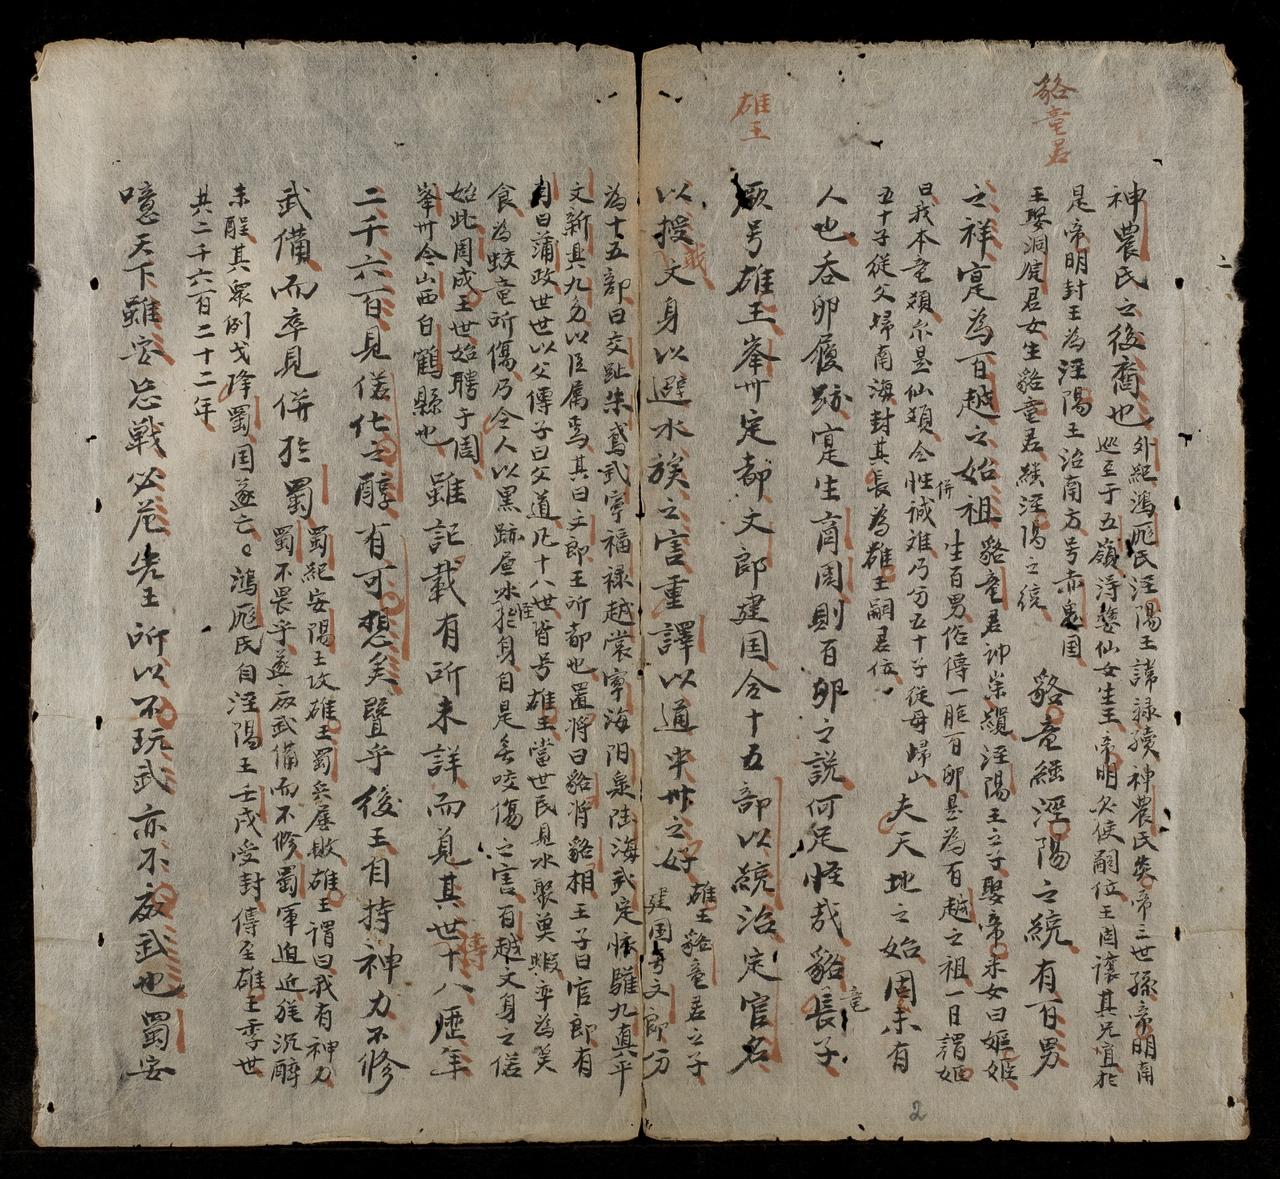 貉竜君
雄王
神農氏之後裔也
外紀鴻厖氏涇陽王諱禄續神農氏炎帝三世孫帝明南
巡至于五嶺淂婺仙女生王帝明欠使嗣位王固讓其兄宜於
是帝明封王為涇陽王治南方号赤鬼囯
王娶洞庭君女生貉竜君継涇陽之統
貉竜継涇陽之統有百男
之祥寔為百越之始祖
貉竜君諱崇纜涇陽王之子娶帝来女曰嫗姬
生百男俗傳一胞百卵是為百越之祖一日謂姬
曰我本竜類尔是仙類合併性誠难乃分五十子従母歸山
五十子従父歸南海封其長為雄王嗣君位
夫天地之始固未有
人也吞卵履跡寔生商周則百卵之說何足怪哉貉竜長子
厥号雄王峯州定都文郎建囯令十五部以統治定官名
以授戎文身以避水族之害重譯以通中州之好
雄王貉竜君之子
建囯号文郎分
為十五部曰交趾朱鳶武寧福禄越裳寧海阳泉陆海武定怀驩九真平
文新具九多以臣属焉其曰文郎王所都也置将曰貉将貉相王子曰官郎有
司曰蒲政世世以父傳子曰父道凡十八世皆号雄王當世民見水聚奠蝦率為笑
食為蛟竜所傷乃令人以黑跡画水怪於身自是無咬傷之害百越文身之俗
始此周成王世始聘于周
峯州今山西白鶴縣也
雖記載有所未詳而見其世傳十八歴年
二千六百見俗化之醇有可想矣曁乎後王自持神力不修
武備而卒見併於蜀
蜀紀安陽王攻雄王蜀兵屡敗雄王謂曰我有神力
蜀不畏乎遂廃武備而不修蜀軍迫近猶沉醉
未醒其衆倒戈降蜀囯遂亡。鴻厖氏自涇陽王壬戌受封傳至雄王季世
共二千六百二十二年
噫天下雖安忘戰必危先王所以不玩武亦不廃武也蜀安
2